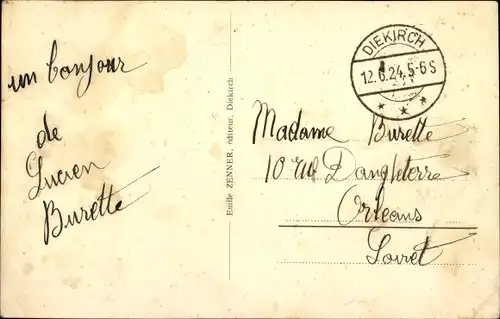 un bonjour
de
Lucien
Burette
Emile ZENNER, éditeur, Diekirch
DIEKIRCH
12.6.24.5-6S
Madame Burette
10 rue Dangleterre
Orleans
Loiret